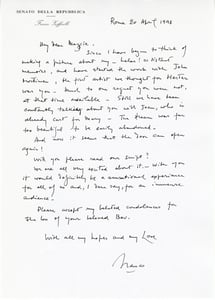 SENATO DELLA REPUBBLICA
Franco Zeffirelli
My Dear Maggie.
Since I began to think of
making a picture about my
memoirs, and have started the work with John
Mortimer, the first artist we thought for Hester
was you - Much to our regret you were not,
at that time available - Still we have been
constantly talking about you with Joan, who is
already cast for Mary - The team was far
too beautiful to be easily abandoned.
And now it seems that the door can open
again!
Will you please read our script?
We are all very excited about it - With you
it would definitely be a sensational experience
for all of us and, I dare say, for an immense
audience.
Please accept my belated condolences for
the loss of your beloved Bev.
With all my hopes and my Love
Franco